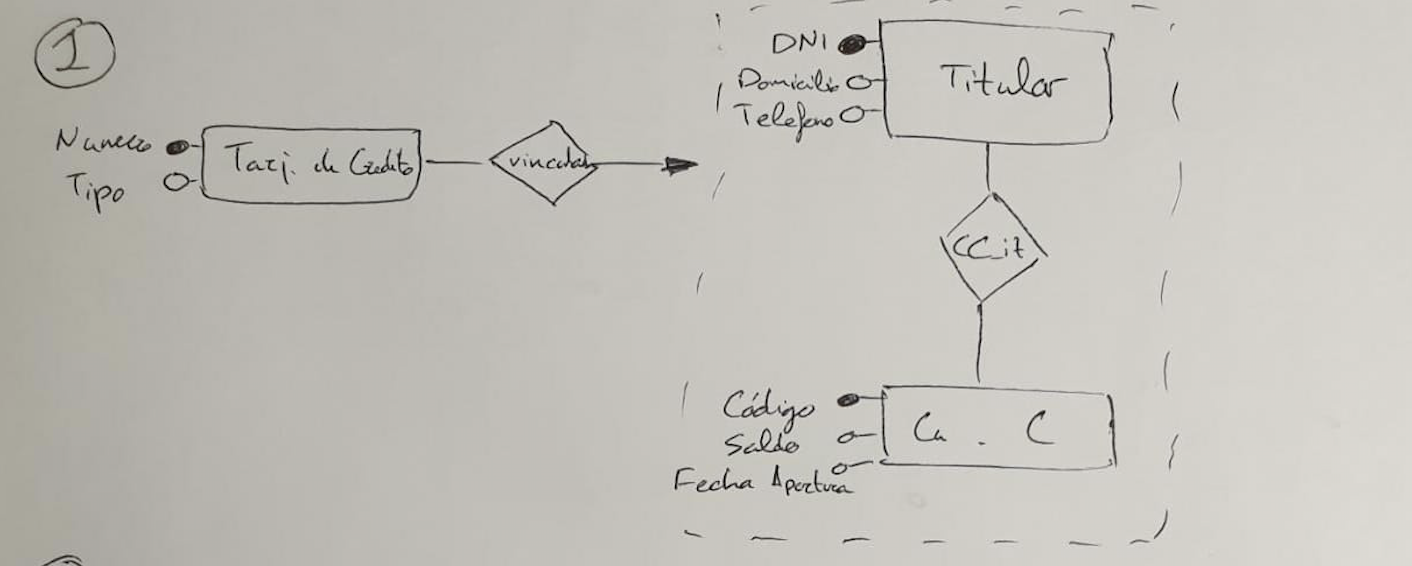 1
Numero
Tipo
Tarj. de Credito
vinculada
DNI
Domicilio
Telefono
Titular
CC_it
Código
Saldo
Fecha Apertura
Cu. C